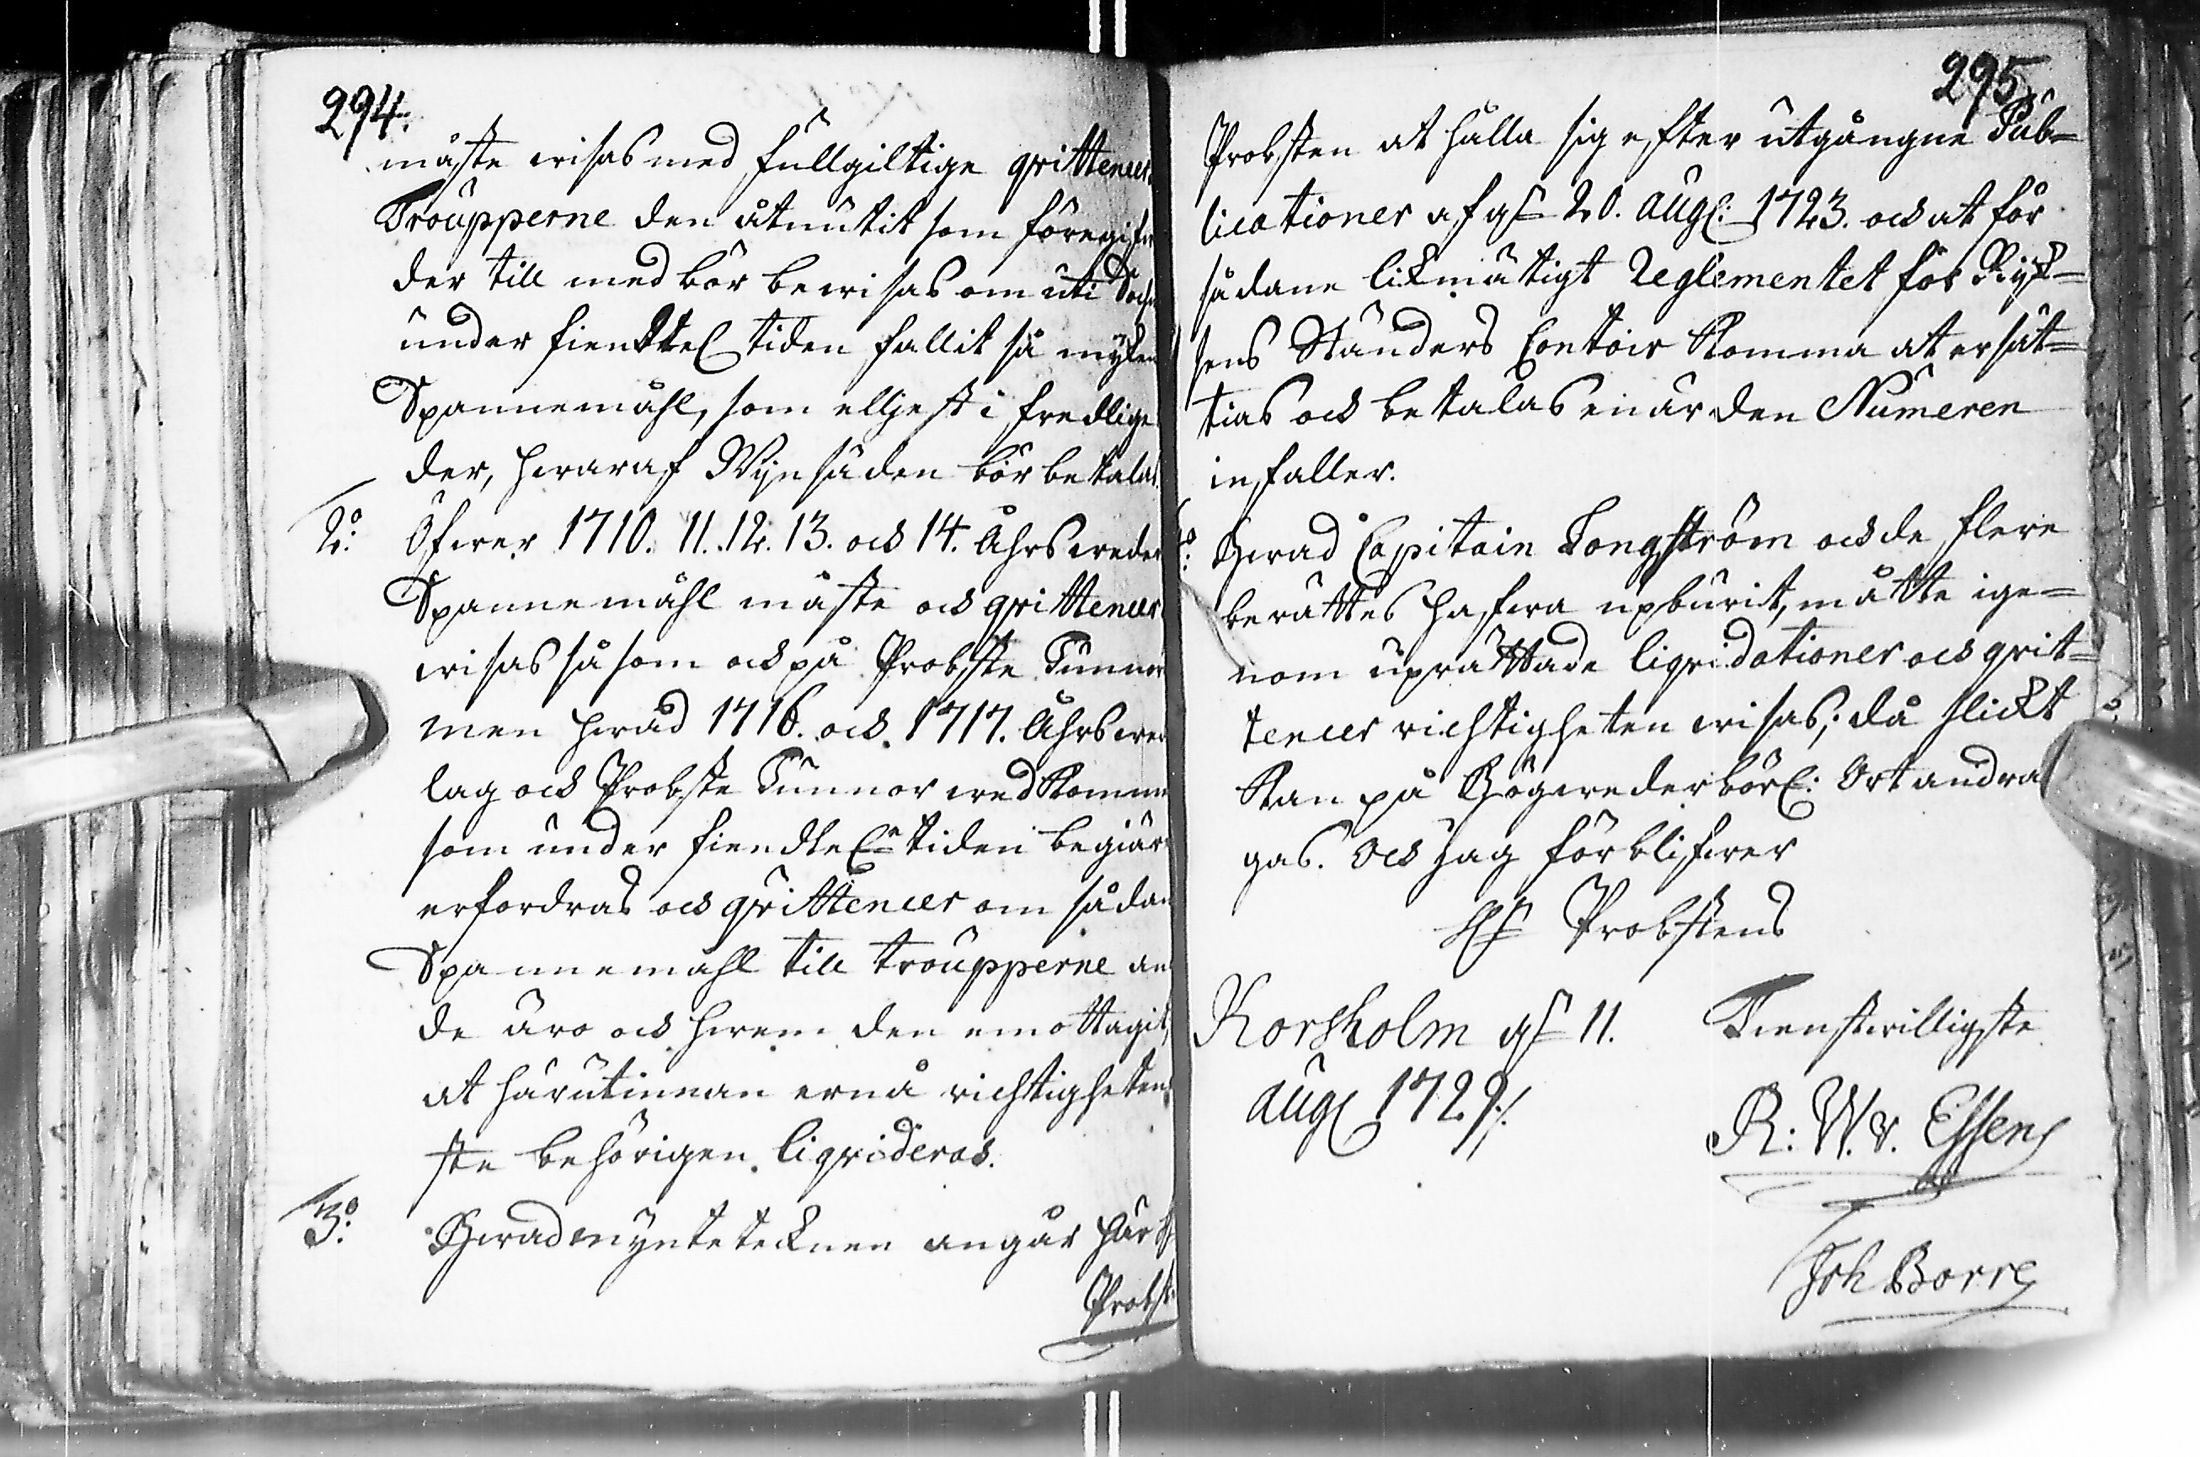 294.
måste wisas med fullgiltige qvittencer
Troupperne den åtniutit som föregifw
der till med bör bewisas om uti Sochn
under fiendtel. tiden fallit så myken
Spannemåhl, som elljest i fredlige
der, hwaraf Wijnsäden bör betalas.
2:o Öfwer 1710. 11. 12. 13. och 14. Åhrs
Spannemåhl måste och qvittencer
wisas så som och på Probste Tunnor
men hwad 1716. och 1717. Åhrs
lag och Probste Tunnor wedkomm
som under fiendtel:n tiden begiär
erfordras och qvittencer om sådan
Spannemåhl till troupperne an
de äro och hwem den emottagit,
at härutinnan ernå richtigheten
ste behörigen liqvideras.
3:o Hwad myntetecknen angår här H:r
Probst
295
Probsten at hålla sig efter utgångne Pub=
licationer af d: 20. Aug: 1723. och at för
sådane likmätigt Reglementet för Rijk=
sens Ständers Contoir komma at ersät=
tias och betalas enär den Numeren
infaller.
Hwad Capitain Longström och de flere
berättes hafwa upburit, måtte ige=
nom uprättade liqvidationer och qvit=
tencer richtigheten wisas; då slickt
kan på Högwederbörl: Ort andra
gas. Och Jag förblifwer
H:r Probstens
Korsholm d: 11. Tienstwilligste
Aug 1729./. R: W. v. Essen
Joh Borre